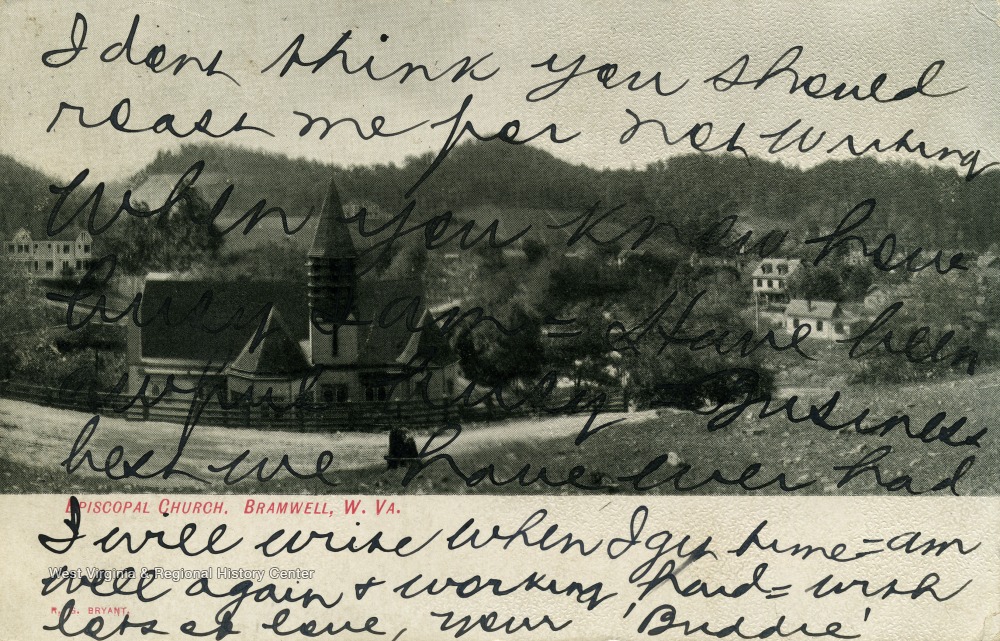 I dont think you should
roast me for not writing
when you know how
busy I am = Have been
awful busy - Business
best we have ever had
EPISCOPAL CHURCH. BRAMWELL, W. VA.
I will write when I get time = am
West Virginia & Regional History Center
well again & working hard = with
W. G. BRYANT.
lots of love, your 'Buddie'